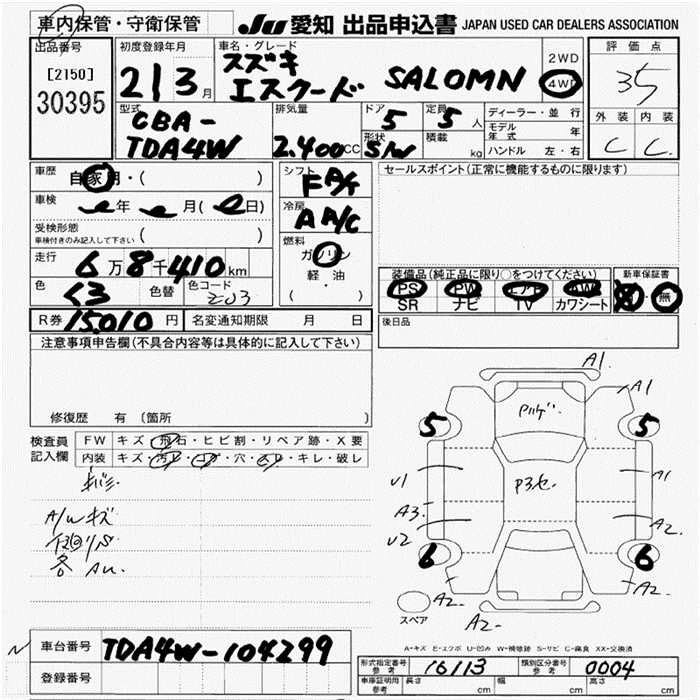 車内保管・守衛保管
JU 愛知 出品申込書 JAPAN USED CAR DEALERS ASSOCIATION
出品番号
[2150]
30395
初度登録年月
21 3月
車名・グレード
スズキ
エスクード SALOMN
2WD
4WD
評価点
35
外装 内装
C C
型式
CBA-
TDA4W
排気量
2.400CC
ドア
5
定員
5人
形状
S/W
積載
kg
ディーラー・並行
モデル年式 年
ハンドル 左・右
車歴
自家用・( )
車検
年 月( 日)
受検形態
車検付きのみ記入して下さい ( )
走行
6万8千410km
色
くろ
色替
色コード
ZJ3
シフト
FA/4
冷房
A A/C
燃料
ガソリン
軽・油
( ・ )
セールスポイント(正常に機能するものに限ります)
装備品(純正品に限り○をつけてください)
PS PW エアB AW
SR ナビ TV カワシート
新車保証書
有 無
後日品
R券 15.010円
名変通知期限 月 日
注意事項申告欄(不具合内容等は具体的に記入して下さい)
修復歴 有(箇所 )
検査員
記入欄
FW キズ・飛石・ヒビ割・リペア跡・X要
内装 キズ・汚レ・コゲ・穴・スレ・キレ・破レ
A/Wキズ
各 AU.
A1
A1
Pハゲ.
5
5
U1
A1
P3セ.
A3
A2
U2
6
6
A2
A2
A2
スペア
A-キズ E-エクボ U-凹み W-補修跡 S-サビ C-腐食 XX-交換済
車台番号 TDA4W-104299
登録番号
形式指定番号
参考
16113
類別区分番号
参考
0004
車庫証明用
参考
長さ cm
幅 cm
高さ cm